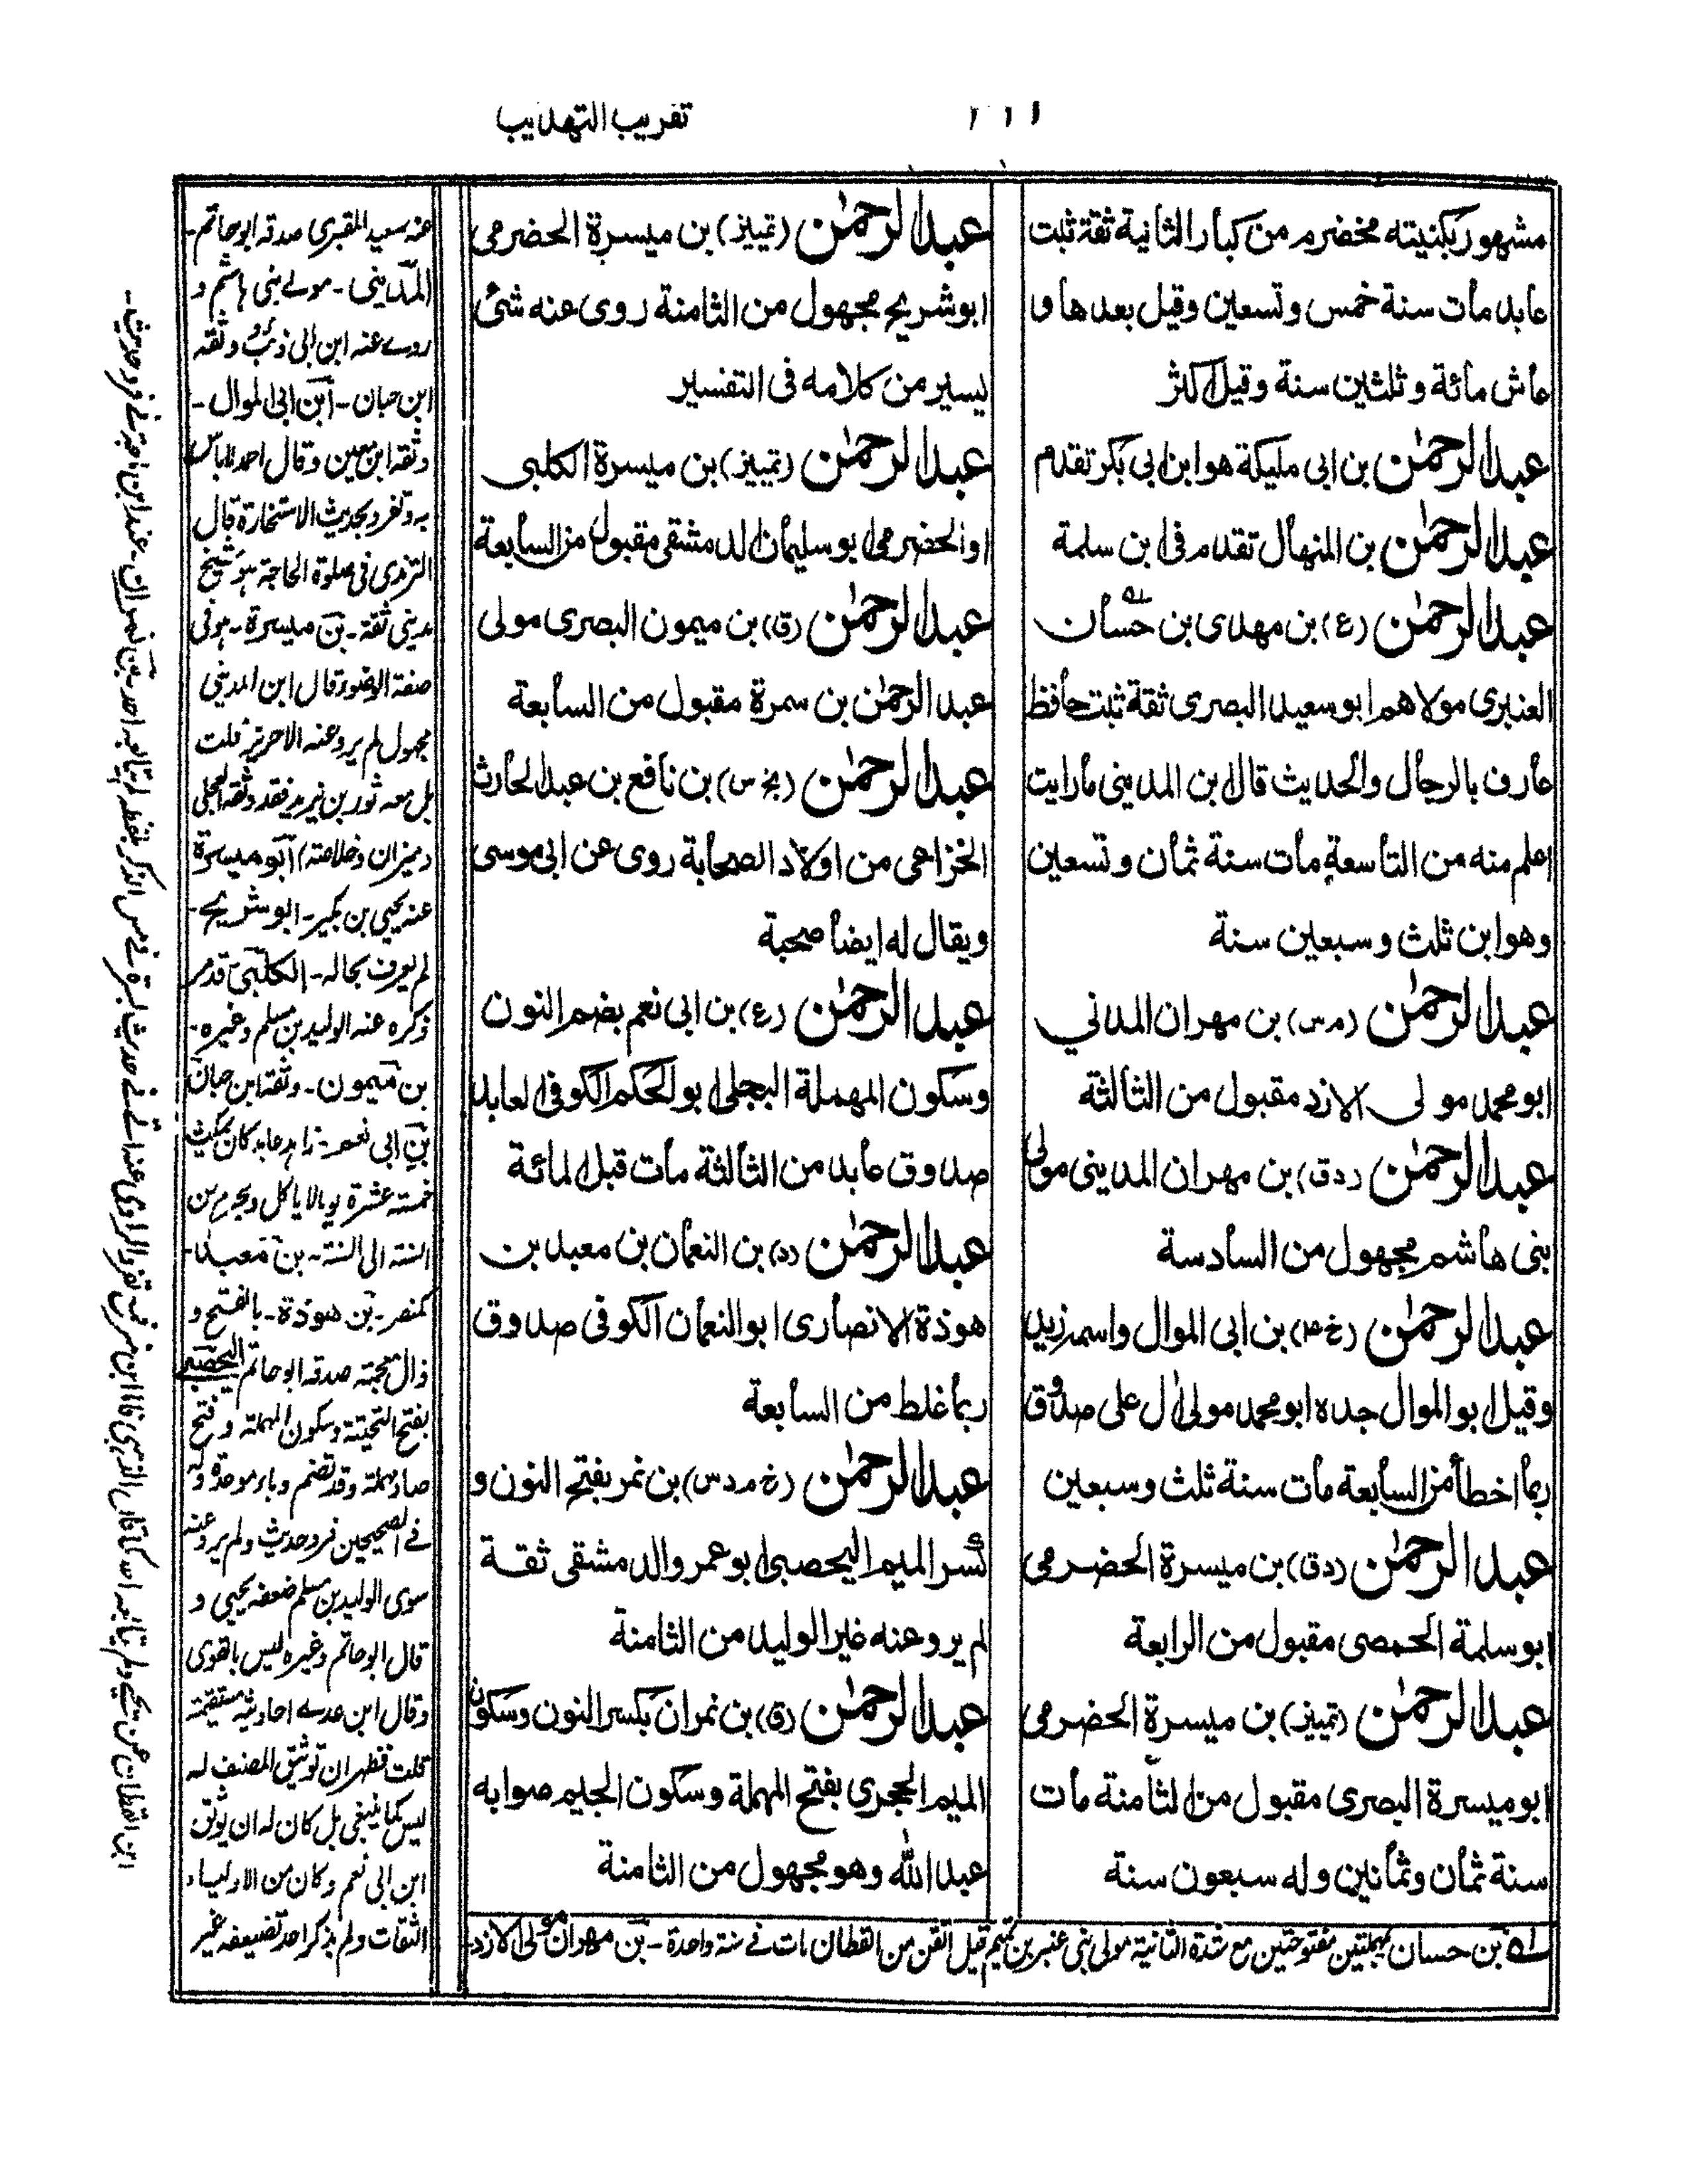 تقريب التهذيب
مشهور بكنيته مخضرم من كبار الثانية ثقة ثبت
عابد مات سنة خمس وتسعين وقيل بعدها و
عاش مائة وثلثين سنة وقيل اكثر
عبد الرحمٰن بن ابى مليكة هو ابن ابى بكر تقدم
عبد الرحمٰن بن المنهال تقدم فى ابن سلمة
عبد الرحمٰن (ع) بن مهدى بن حسان
العنبرى مولاهم ابو سعيد البصرى ثقة ثبت حافظ
عارف بالرجال والحديث قال ابن المدينى ما رايت
اعلم منه من التاسعة مات سنة ثمان وتسعين
وهو ابن ثلث وسبعين سنة
عبد الرحمٰن (م س) بن مهران المدني
ابو محمد مولى الازد مقبول من الثالثة
عبد الرحمٰن (د ق) بن مهران المدينى مولى
بنى هاشم مجهول من السادسة
عبد الرحمٰن (خ ۴) بن ابى الموال واسمه زيد
وقيل ابو الموال جده ابو محمد مولى اٰل على صدوق
ربما اخطأ من السابعة مات سنة ثلث وسبعين
عبد الرحمٰن (د ق) بن ميسرة الحضرمى
ابو سلمة الحمصى مقبول من الرابعة
عبد الرحمٰن (تمييز) بن ميسرة الحضرمى
ابو ميسرة البصرى مقبول من الثامنة مات
سنة ثمان وثمانين وله سبعون سنة
عبد الرحمٰن (تمييز) بن ميسرة الحضرمى
ابو شريح مجهول من الثامنة روى عنه شئ
يسير من كلامه فى التفسير
عبد الرحمٰن (تمييز) بن ميسرة الكلبى
او الحضرمى ابو سليمان الدمشقى مقبول من السابعة
عبد الرحمٰن (ق) بن ميمون البصرى مولى
عبد الرحمٰن بن سمرة مقبول من السابعة
عبد الرحمٰن (بخ س) بن نافع بن عبد الحارث
الخزاعى من اولاد الصحابة روى عن ابى موسى
ويقال له ايضا صحبة
عبد الرحمٰن (ع) بن ابى نعم بضم النون
وسكون المهملة البجلى ابو الحكم الكوفى العابد
صدوق عابد من الثالثة مات قبل المائة
عبد الرحمٰن (د) بن النعمان بن معبد بن
هوذة الانصارى ابو النعمان الكوفى صدوق
ربما غلط من السابعة
عبد الرحمٰن (خ م د س) بن نمر بفتح النون و
كسر الميم اليحصبى ابو عمرو الدمشقى ثقة
لم يرو عنه غير الوليد من الثامنة
عبد الرحمٰن (ق) بن نمران بكسر النون وسكون
الميم الحجرى بفتح المهملة وسكون الجيم صوابه
عبد الله وهو مجهول من الثامنة
بن حسان بمهملتين مفتوحتين مع شدة الثانية مولى بنى عنبر بن تميم قيل اتقن من القطان مات فے سنة واحدة - بن مهران مولى الازد -
عنه سعيد المقبرى صدقه ابو حاتم -
المدينى - مولے بنى هاشم و
روے عنه ابن ابى ذئب وثقه
ابن حبان - ابن ابى الموال -
وثقه ابن معين وقال احمد لا باس
به وتفرد بحديث الاستخارة قال
الترمذى فى صلوة الحاجة هو شيخ
مدينى ثقة - بن ميسرة - هو فى
صفة الوضوء قال ابن المدينى
مجهول لم يرو عنه الا حريز قلت
بل معه ثور بن يزيد فقد وثقه العجلى
(ميزان وخلاصة) ابو ميسرة
عنه يحيى بن بكير - ابو شريح -
لم يعرف بحاله - الكلبى قد مر
ذكره عنه الوليد بن مسلم وغيره -
بن ميمون - وثقه ابن حبان
بن ابى نعم - زاهد عابد كان يمكث
خمسة عشرة يوما لا ياكل ويحرم من
السنة الى السنة - بن معبد -
كمنبر - بن هوذة - بالفتح و
ذال معجمة صدقه ابو حاتم اليحصبى
بفتح التحتية وسكون المهملة وفتح
صاد مهملة وقد تضم وباء موحدة وله
فے الصحيحين فرد حديث ولم يرو عنه
سوى الوليد بن مسلم ضعفه يحيى و
قال ابو حاتم وغيره ليس بالقوى
وقال ابن عدے احاديثه مستقيمة
قلت فظهر ان توثيق المصنف له
ليس كما ينبغى بل كان له ان يوثق
ابن ابى نعم وكان من الاولياء
الثقات ولم يذكر احد تضعيفه غير